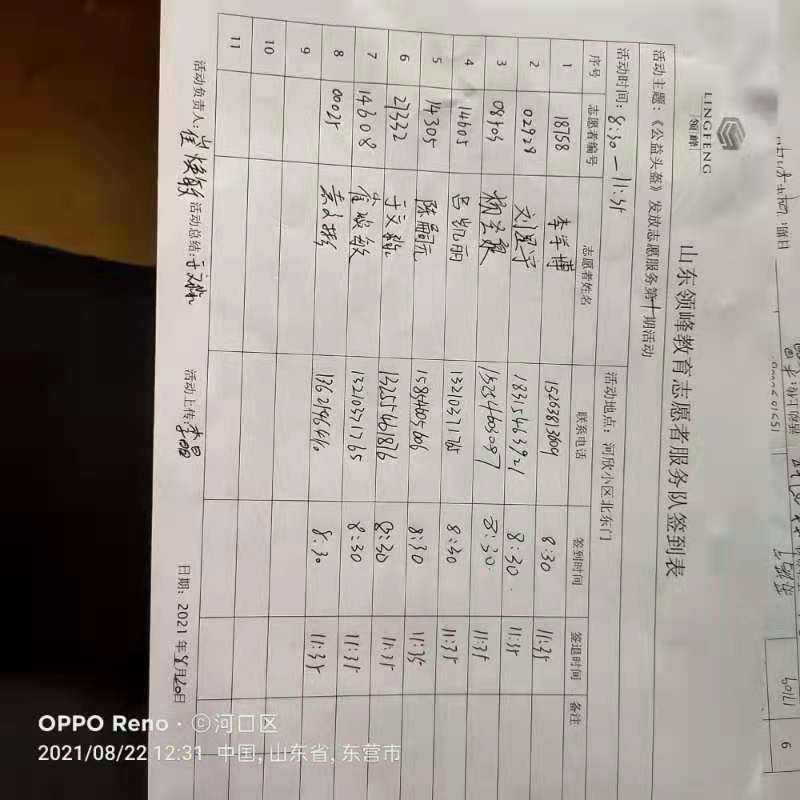 LINGFENG
领峰
山东领峰教育志愿者服务队签到表
活动主题：《公益头盔》发放志愿服务第十期活动
活动时间：8:30—11:35 活动地点：河欣小区北东门
序号 志愿者编号 志愿者姓名 联系电话 签到时间 签退时间 备注
1 18758 李学博 15263813609 8:30 11:35
2 02928 18315463921 8:30 11:35
3 08703 15254608087 8:30 11:35
4 14605 吕凯丽 1321037175 8:30 11:35
5 14305 陈嗣元 15854605606 8:30 11:35
6 21332 于文 13255461876 8:30 11:35
7 14608 崔焕敏 13210371765 8:30 11:35
8 00025 8:30 11:35
9
10
11
活动负责人：崔焕敏 活动总结：于文 活动上传：李晶 日期：2021年8月20日
OPPO Reno · ©河口区
2021/08/22 12:31 中国, 山东省, 东营市